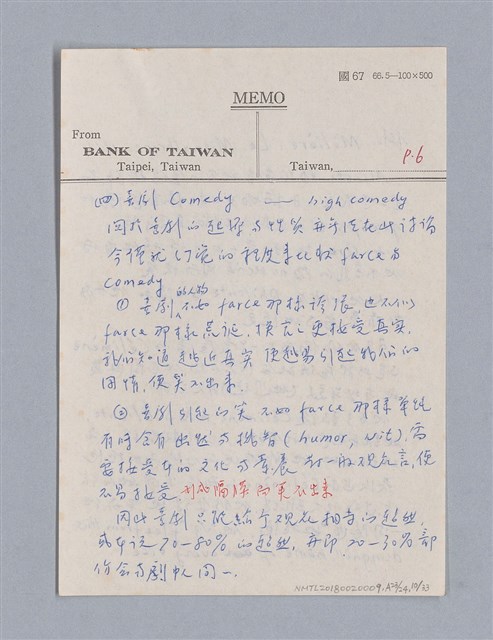 國 67 66.5—100×500
MEMO
From
BANK OF TAIWAN
Taipei, Taiwan
Taiwan,
P.6
(四) 喜劇 Comedy — high comedy
関於喜劇的起源与性質并不在此討論
今僅就幻覚的程度来比較 farce 与
comedy
① 喜劇的人物不如 farce 那樣誇張,也不似
farce 那樣荒誕,換言之更接受真实,
我們知道越近真实便越易引起我們的
同情,便笑不出来.
② 喜劇引起的笑不如 farce 那樣單純
有時含有幽默与機智(humor, wit),需
要接受者的文化与素養 対一般观众言,便
不易接受,形成隔膜而笑不出来
因此喜劇只能給予观众相当的幻覚,
或者说 70-80% 的幻覚,并即 20-30% 部
份会与劇中人同一.
NMTL20180020009, A23/24, 10/33